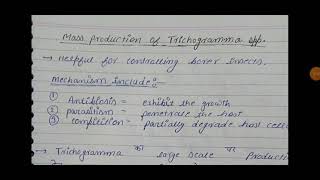 Mass production of Trichogramma spp.
→ Helpful for controlling borer insects.
Mechanism include:
① Antibiosis = exhibit the growth
② parasitism = penetrate the host
③ compitition = partially degrade host cell
→ Trichogramma का large scale पर Production